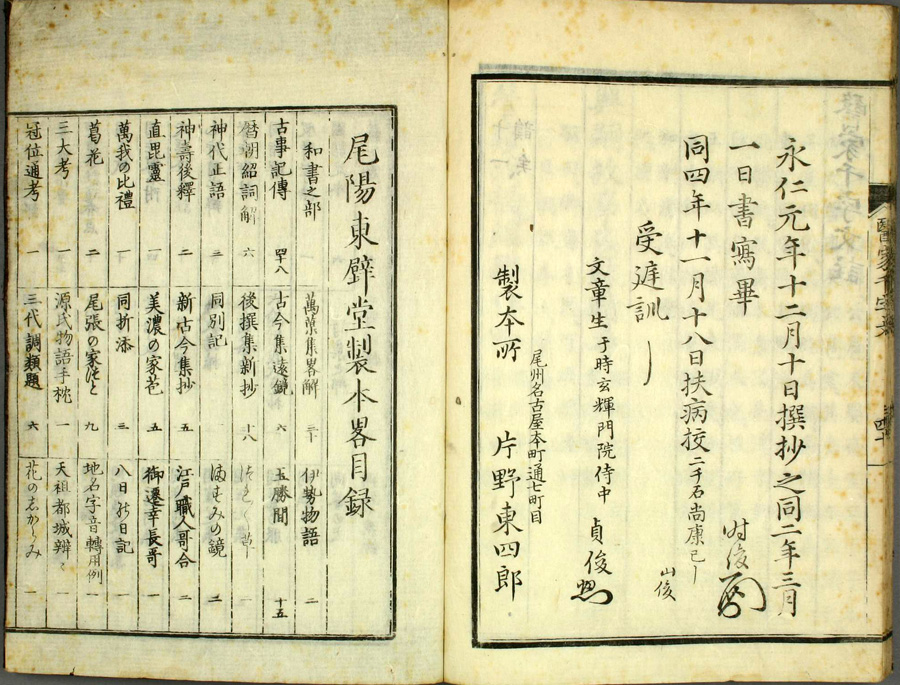 永仁元年十二月十日撰抄之同二年三月
一日書寫畢 時俊
同四年十一月十八日扶病挍二千石尚康已
山俊
受遅訓
文章生于時玄輝門院侍中 貞俊
尾州名古屋本町通七町目
製本所 片野東四郎
尾陽東壁堂製本畧目録
和書之部
萬葉集畧解 三十
伊勢物語 二
古事記傳 罕八
古今集遠鏡 六
玉勝間 十五
暦朝紹詞解 六
後撰集新抄 十八
神代正語 三
同別記 一
満寸みの鏡 二
神壽後釋 二
新古今集抄 五
江戸職人哥合 二
直毘靈 一
美濃の家苞 五
御遷幸長哥 一
萬我の比禮 一
同折添 三
八日の日記 一
葛花 二
尾張の家つと 九
地名字音轉用例 一
三大考 一
源氏物語手枕 一
天祖都城辨々 一
冠位通考 一
三代調類題 六
花のしがらみ 一